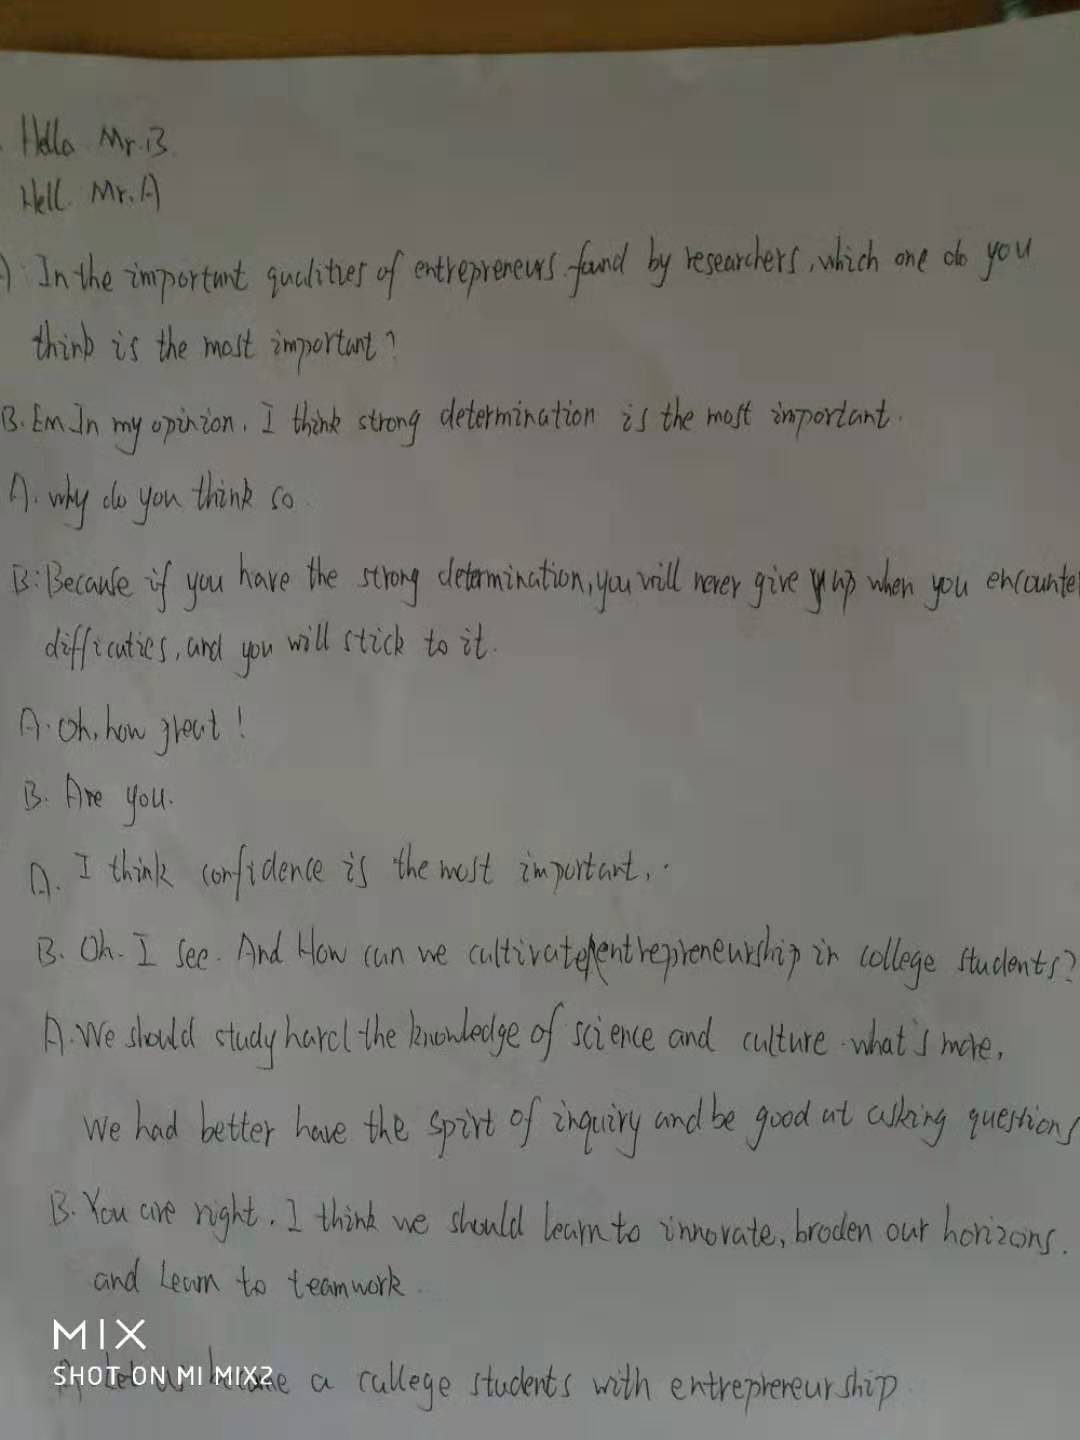 Hello Mr.B
Hell Mr.A
A: In the important qualities of entrepreneurs found by researchers, which one do you
think is the most important?
B. Em In my opinion, I think strong determination is the most important.
A. why do you think so.
B: Because if you have the strong determination, you will never give up when you encounte
difficuties, and you will stick to it.
A. Oh, how great!
B. Are you.
A. I think confidence is the most important,.
B. Oh. I see. And How can we cultivate entrepreneurship in college students?
A. We should study hard the knowledge of science and culture what's more,
We had better have the spirt of inquiry and be good at asking questions
B. You are right. I think we should learn to innovate, broden our horizons.
and learn to teamwork.
A. Let us become a college students with entrepreneurship
MIX
SHOT ON MI MIX2